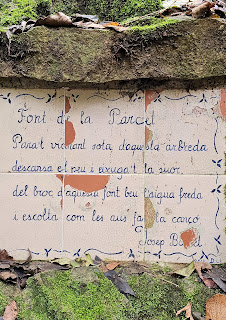 Font de la Parcel
Para't vianant sota d'aquesta arbreda
descansa el peu i eixuga't la suor,
del broc d'aquesta font beu l'aigua freda
i escolta com les aus fan la cançó
Josep